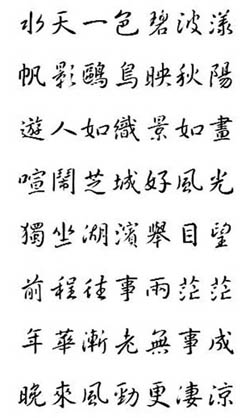 水天一色碧波漾
帆影鷗鳥映秋陽
遊人如織景如畫
喧鬧芝城好風光
獨坐湖濱舉目望
前程往事兩茫茫
年華漸老無事成
晚來風勁更淒涼